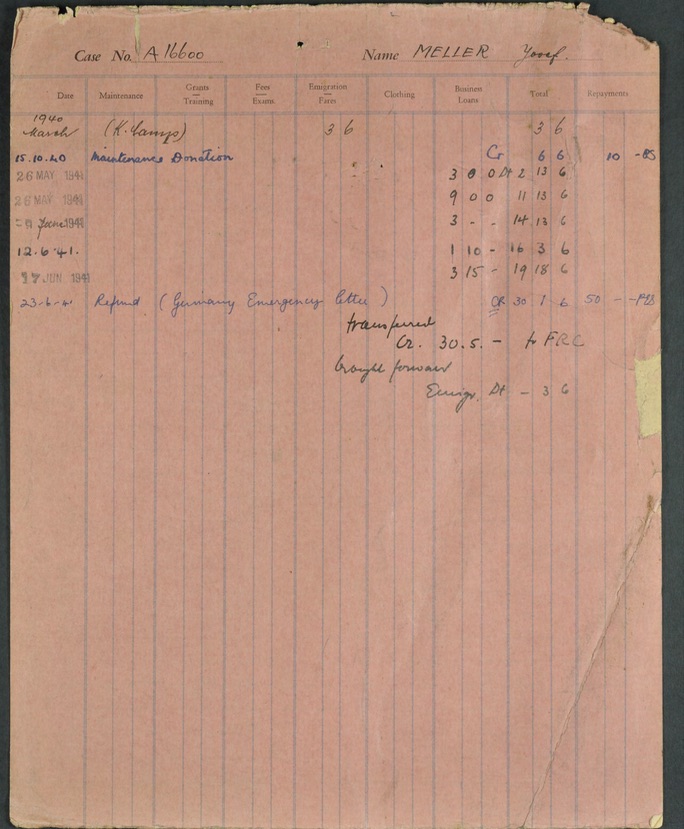 Case No. A 16600 Name MELLER Yosef.
Date Maintenance Grants Training Fees Exams. Emigration Fares Clothing Business Loans Total Repayments
1940
March (K. Camp) 3 6 3 6
15.10.40 Maintenance Donation Cr 6 6 10 -
26 MAY 1941 3 0 0 Dt 2 13 6
26 MAY 1941 9 0 0 11 13 6
-9 June 1941 3 - - 14 13 6
12.6.41. 1 10 - 16 3 6
17 JUN 1941 3 15 - 19 18 6
23.6.41 Refund (Germany Emergency Cttee) CR 30 1 6 50 - -
transferred
Cr. 30.5. - to FRC
brought forward
Emigr. Dt - 3 6